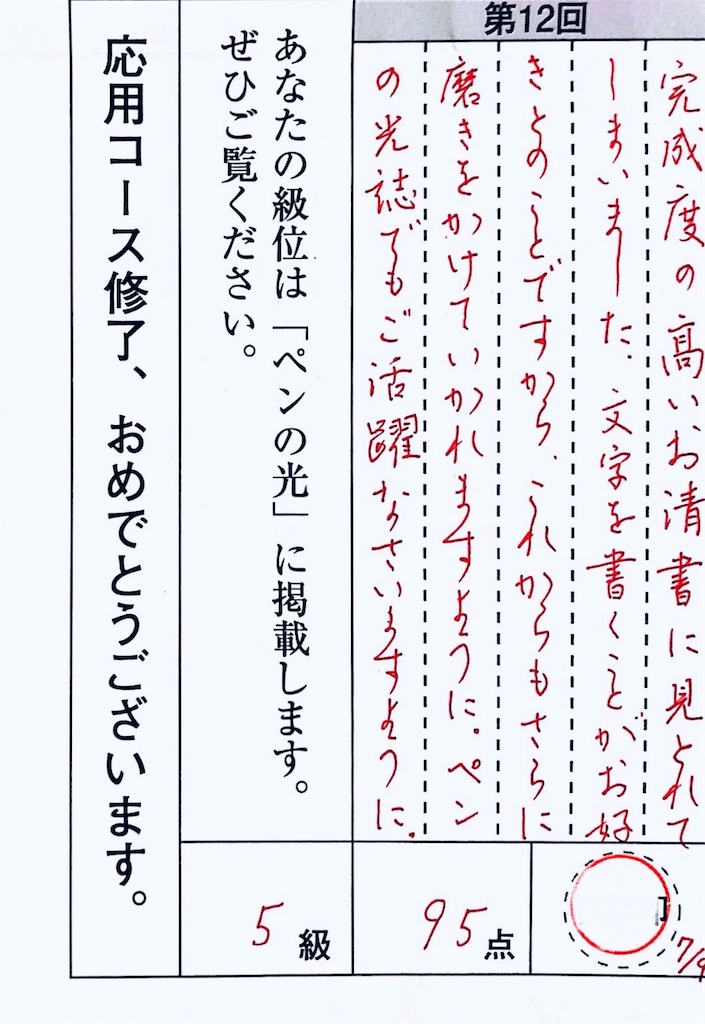 第12回
完成度の高いお清書に見とれて
しまいました。文字を書くことがお好
きとのことですから、これからもさらに
磨きをかけていかれますように。ペン
の光誌でもご活躍なさいますように。
7/9
95点
5級
あなたの級位は「ペンの光」に掲載します。
ぜひご覧ください。
応用コース修了、おめでとうございます。